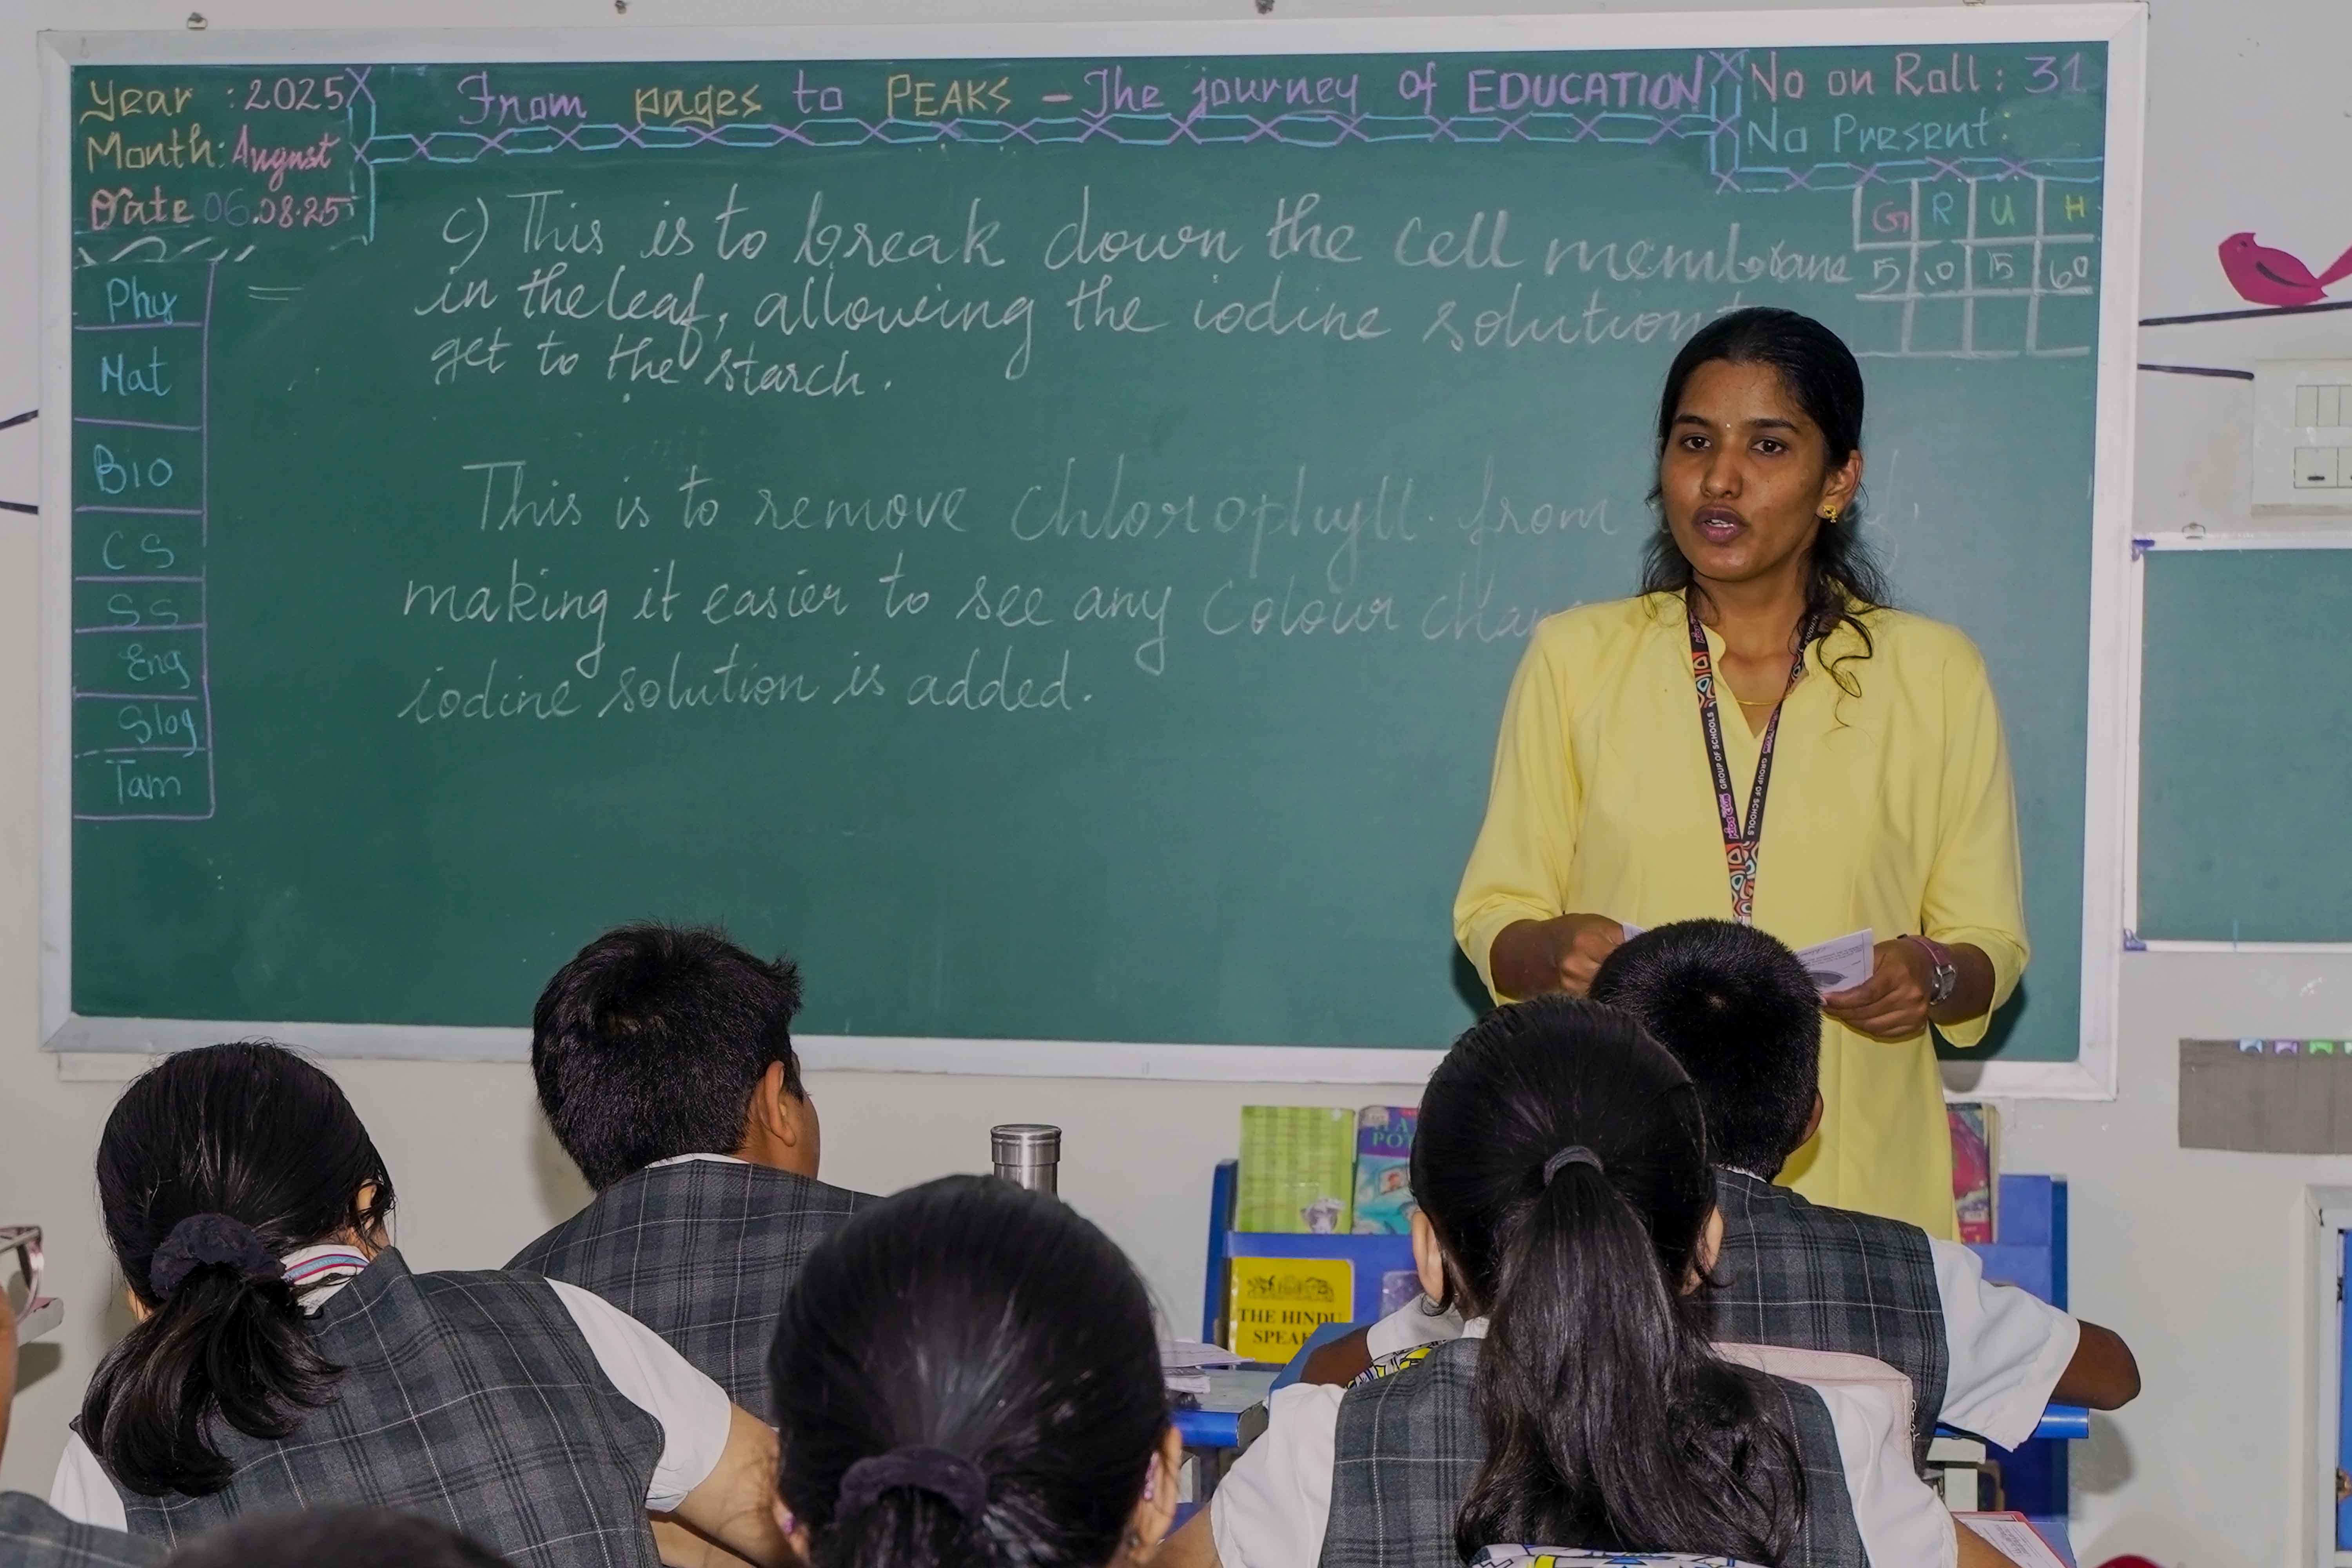 Year : 2025
Month: August
Date 06.08.25
From pages to PEAKS - The journey of EDUCATION
No on Roll : 31
No Present :
G R U H
5 10 15 60
Phy
Mat
Bio
CS
SS
Eng
Slog
Tam
c) This is to break down the cell membrane
in the leaf, allowing the iodine solution
get to the starch.
This is to remove chlorophyll. from
making it easier to see any colour
iodine solution is added.
GROUP OF SCHOOLS
GROUP OF SCHOOLS
THE HINDU